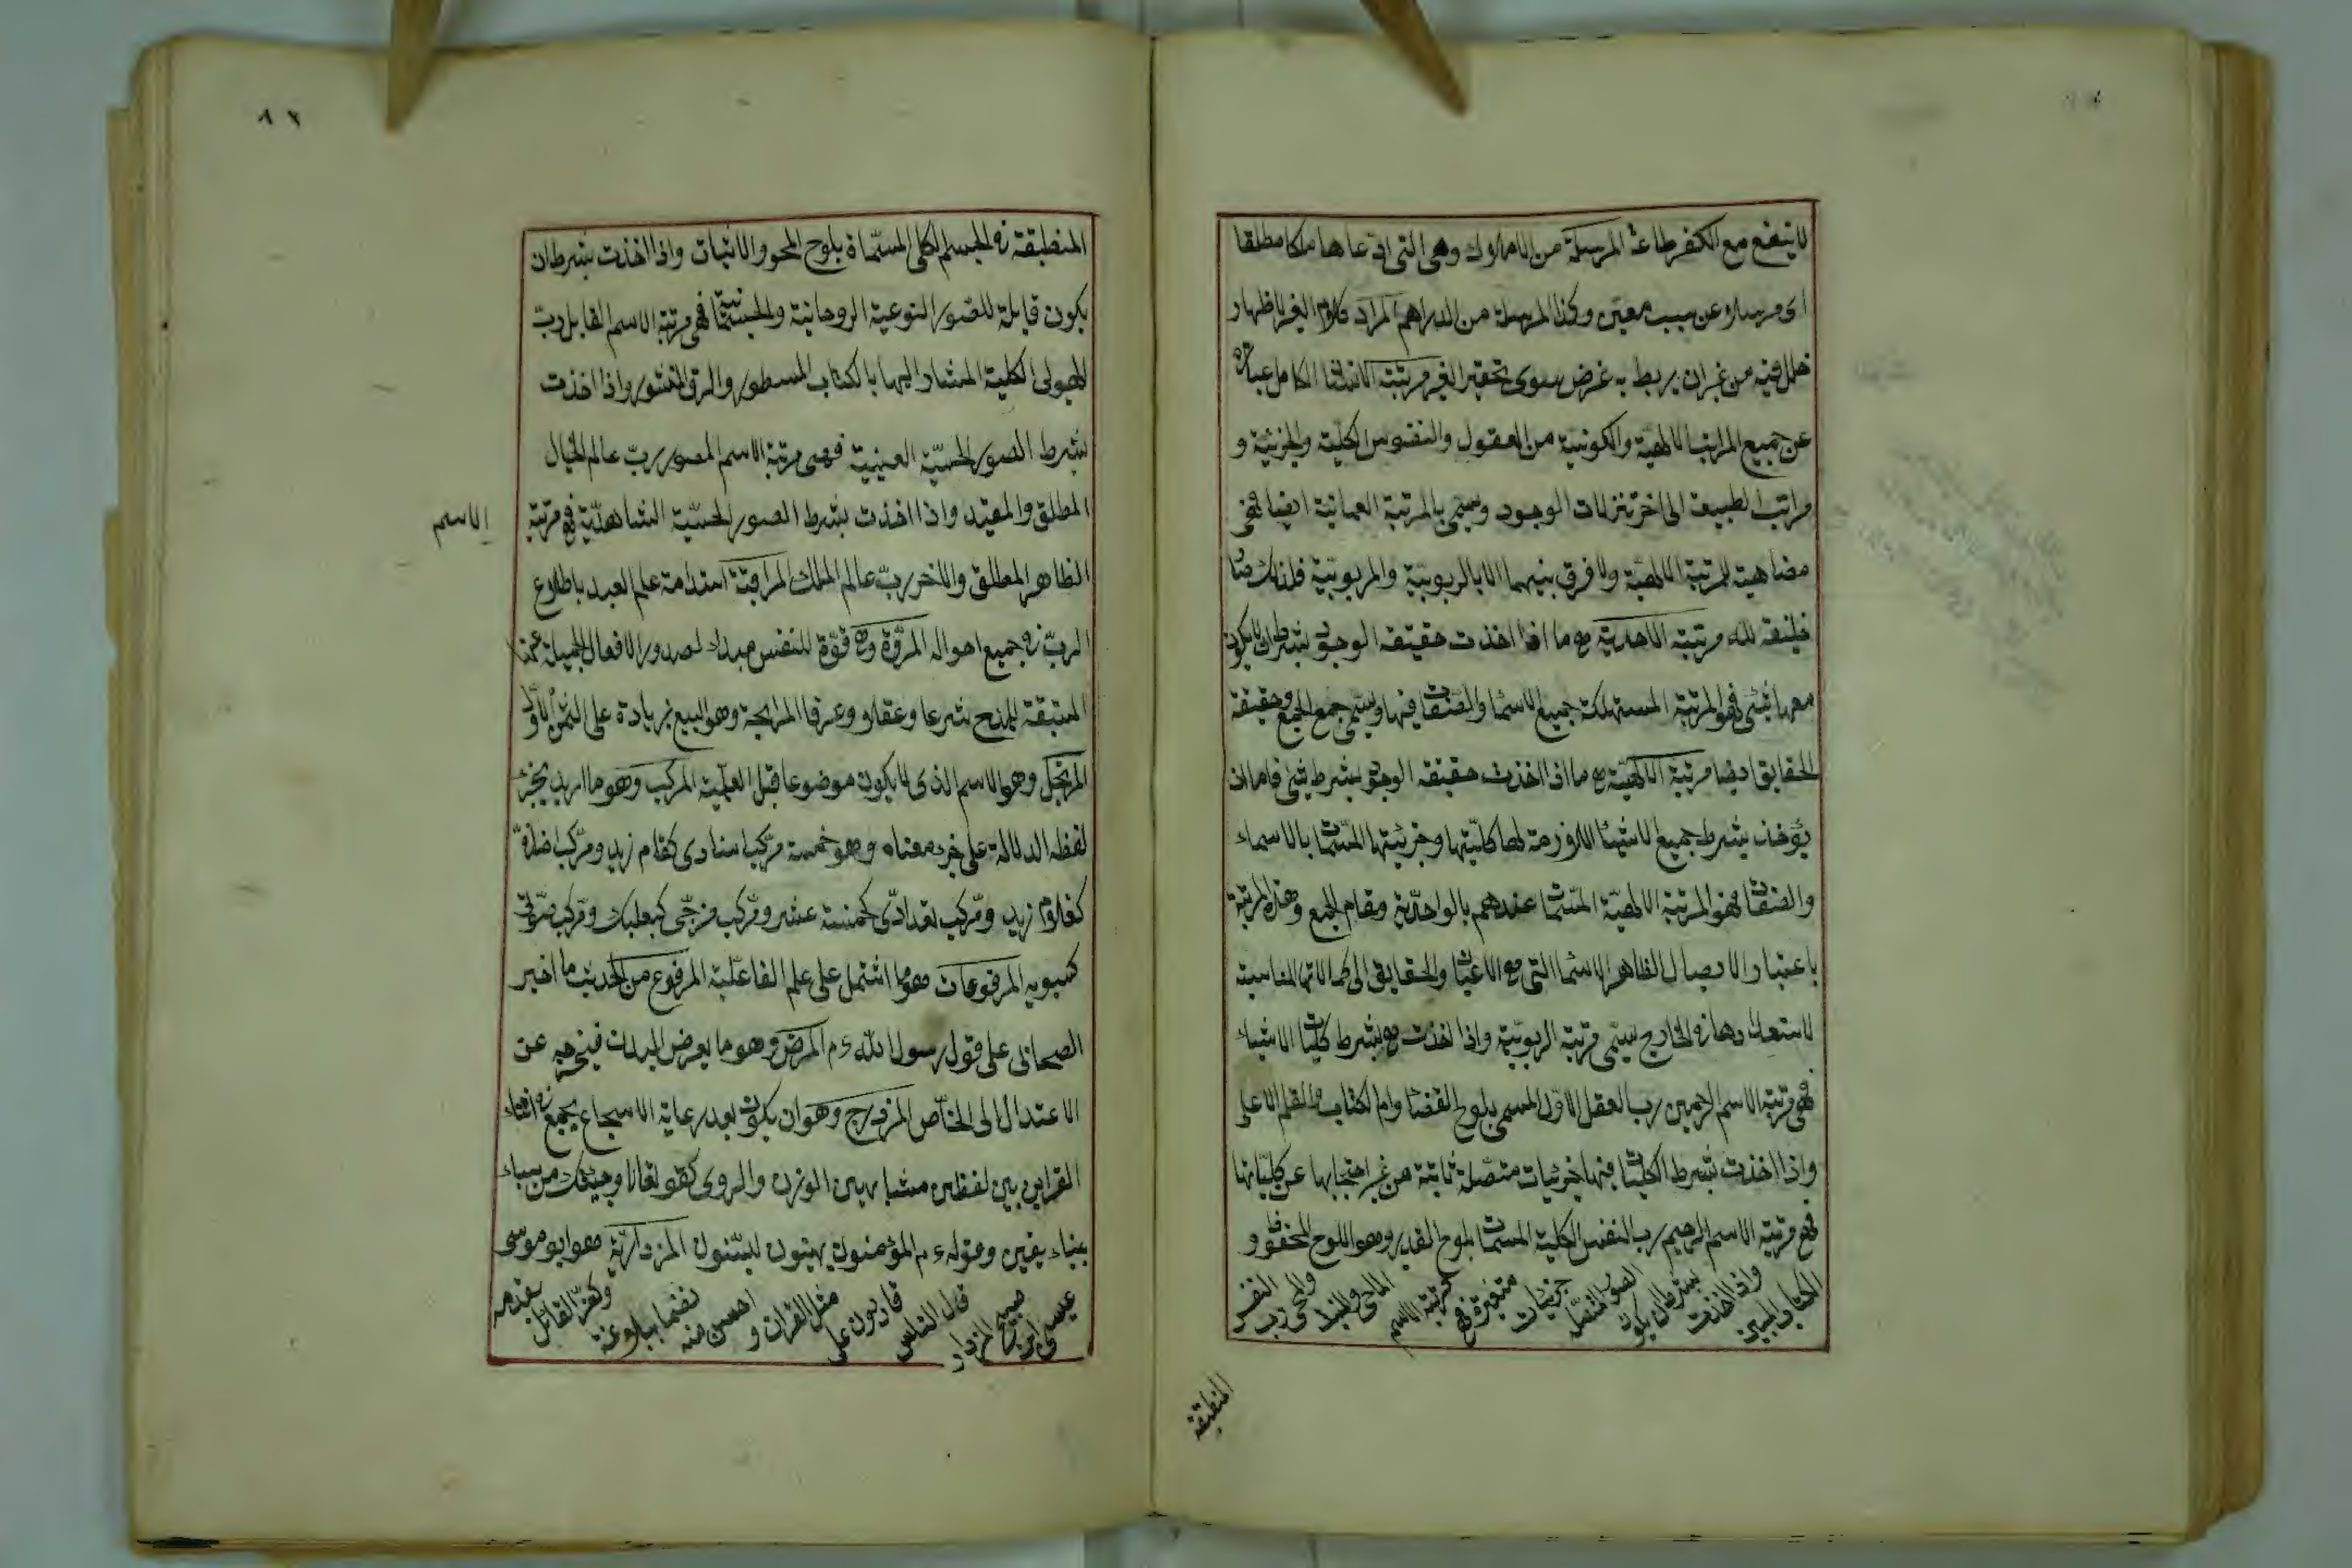 لا ينفع مع الكفر طاعة المرسلة من الاملاك وهى التى ادعاها ملكا مطلقا
اى مرسلا عن سبب معين وكذا المرسلة من الدراهم المراء كلام الغير لاظهار
خلل فيه من غير ان يربط به غرض سوى تحقير الغير مرتبة الانسان الكامل عبارة
عن جميع المراتب الالهية والكونية من العقول والنفوس الكلية والجزئية و
مراتب الطبيعة الى اخر تنزلات الوجود وسمى بالمرتبة العمائية ايضا فهى
مضاهية للمرتبة الالهية ولا فرق بينهما الا بالربوبية والمربوبية فلذلك صار
خليفة لله مرتبة الاحدية هى ما اذا اخذت حقيقة الوجود بشرط ان لا يكون
معها شئ فهو المرتبة المستهلكة جميع الاسماء والصفات فيها ويسمى جمع الجمع وحقيقة
الحقايق ايضا مرتبة الالهية هى ما اذا اخذت حقيقة الوجود بشرط شئ فاما ان
يؤخذ بشرط جميع الاشياء اللازمة لها كليتها وجزئيتها المسماة بالاسماء
والصفات فهو المرتبة الالهية المسماة عندهم بالواحدية ومقام الجمع وهذه المرتبة
باعتبار الايصال لمظاهر الاسماء التى هى الاعيان والحقايق الى كمالاتها المناسبة
لاستعداداتها فى الخارج يسمى مرتبة الربوبية واذا اخذت بشرط كليات الاشياء
فهى مرتبة الاسم الرحمن رب العقل الاول المسمى بلوح القضاء وام الكتاب والقلم الاعلى
واذا اخذت بشرط الكليات فيها جزئيات متصلة ثابتة من غير احتجابها عن كلياتها
فهى مرتبة الاسم الرحيم رب النفس الكلية المسماة بلوح القدر وهو اللوح المحفوظ و
الكتاب المبين واذا اخذت بشرط ان يكون الصور المفصلة جزئيات متغيرة فهى مرتبة الاسم الماحى والمثبت والمحى رب النفس
المنطبقة
٨٢
المنطبقة فى الجسم الكلى المسماة بلوح المحو والاثبات واذا اخذت بشرط ان
يكون قابلة للصور النوعية الروحانية والجسمانية فهى مرتبة الاسم القابل رب
الهيولى الكلية المشار اليها بالكتاب المسطور والرق المنشور واذا اخذت
بشرط الصور الحسية العينية فهى مرتبة الاسم المصور رب عالم الخيال
المطلق والمقيد واذا اخذت بشرط الصور الحسية الشاهدية فهى مرتبة
الاسم
الظاهر المطلق والاخر رب عالم الملك المراقبة استدامة علم العبد باطلاع
الرب فى جميع احواله المروة وهى قوة للنفس مبداء لصدور الافعال الجميلة عنها
المستبقة للمدح شرعا وعقلا وعرفا المرابحة وهو البيع بزيادة على الثمن الاول
المرتجل وهو الاسم الذى لا يكون موضوعا قبل العلمية المركب وهو ما اريد بجزء
لفظه الدلالة على جزء معناه وهو خمسة مركب اسنادى كقام زيد ومركب اضافى
كغلام زيد ومركب تعدادى كخمسة عشر ومركب مزجى كبعلبك ومركب صوتى
كسيبويه المرفوعات هو ما اشتمل على علم الفاعلية المرفوع من الحديث ما اخبر
الصحابى على قول رسول الله ءم المرض وهو ما يعرض للبدن فيخرجه عن
الاعتدال الى الخاص المزدوج وهو ان يكون بعد رعاية الاسجاع يجمع فى اثناء
القراين بين لفظين متشابهين الوزن والروى كقوله تعالى وجئتك من سباء
بنباء يقين وقوله ءم المؤمنون هينون لينون المزدارية هو ابو موسى
عيسى ابن صبيح المزدار قال الناس قادرون على مثل القران و احسن منه نظما وبلاغة وكفر القائل بقدمه